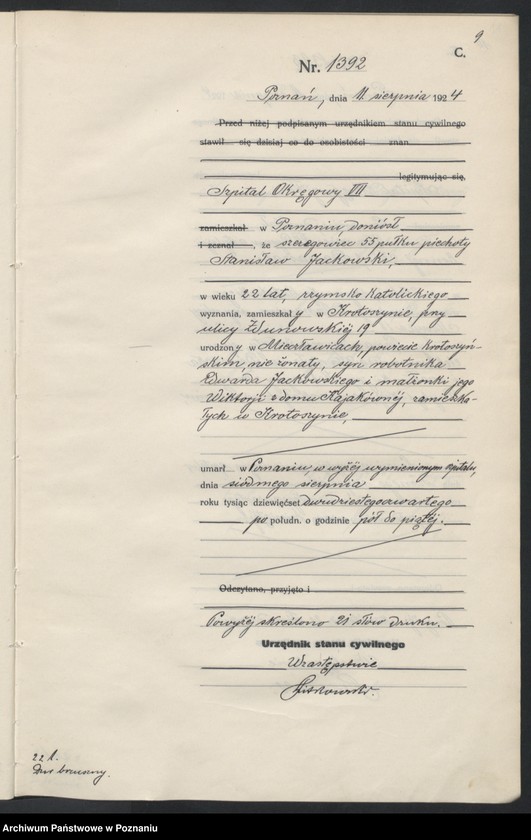 9
C.
Nr. 1392
Poznań, dnia 11. sierpnia 1924
Przed niżej podpisanym urzędnikiem stanu cywilnego
stawił się dzisiaj co do osobistości znan
legitymując się,
Szpital Okręgowy VII
zamieszkał w Poznaniu, doniósł
i zeznał, że szeregowiec 55 pułku piechoty
Stanisław Jackowski,
w wieku 22 lat, rzymsko katolickiego
wyznania, zamieszkały w Krotoszynie, przy
ulicy Zdunowskiéj 19
urodzony w, powiecie krotoszyń-
skim, nie żonaty, syn robotnika
Edwarda Jackowskiego i małżonki jego
Wiktorji z domu Kajakównéj, zamieszka-
łych w Krotoszynie,
umarł w Poznaniu, w wyżéj wymienionym szpitalu,
dnia siódmego sierpnia
roku tysiąc dziewięćset dwudziestegoczwartego
po połudn. o godzinie pół do piątéj.
Odczytano, przyjęto i
Powyżéj skreślono 21 słów druku.
Urzędnik stanu cywilnego
W zastępstwie
22 l.
Dur brzuszny.
Archiwum Państwowe w Poznaniu